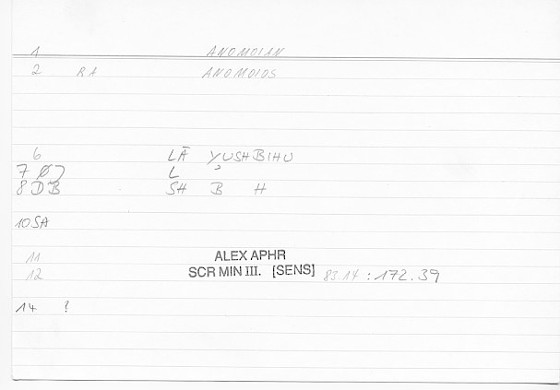 1 ANOMOIAN
2 RA ANOMOIOS
6 LĀ YUSHBIHU
7 L
8 DB SH B H
10 SA
11 ALEX APHR
12 SCR MIN III. [SENS] 8314 : 172.39
14 !